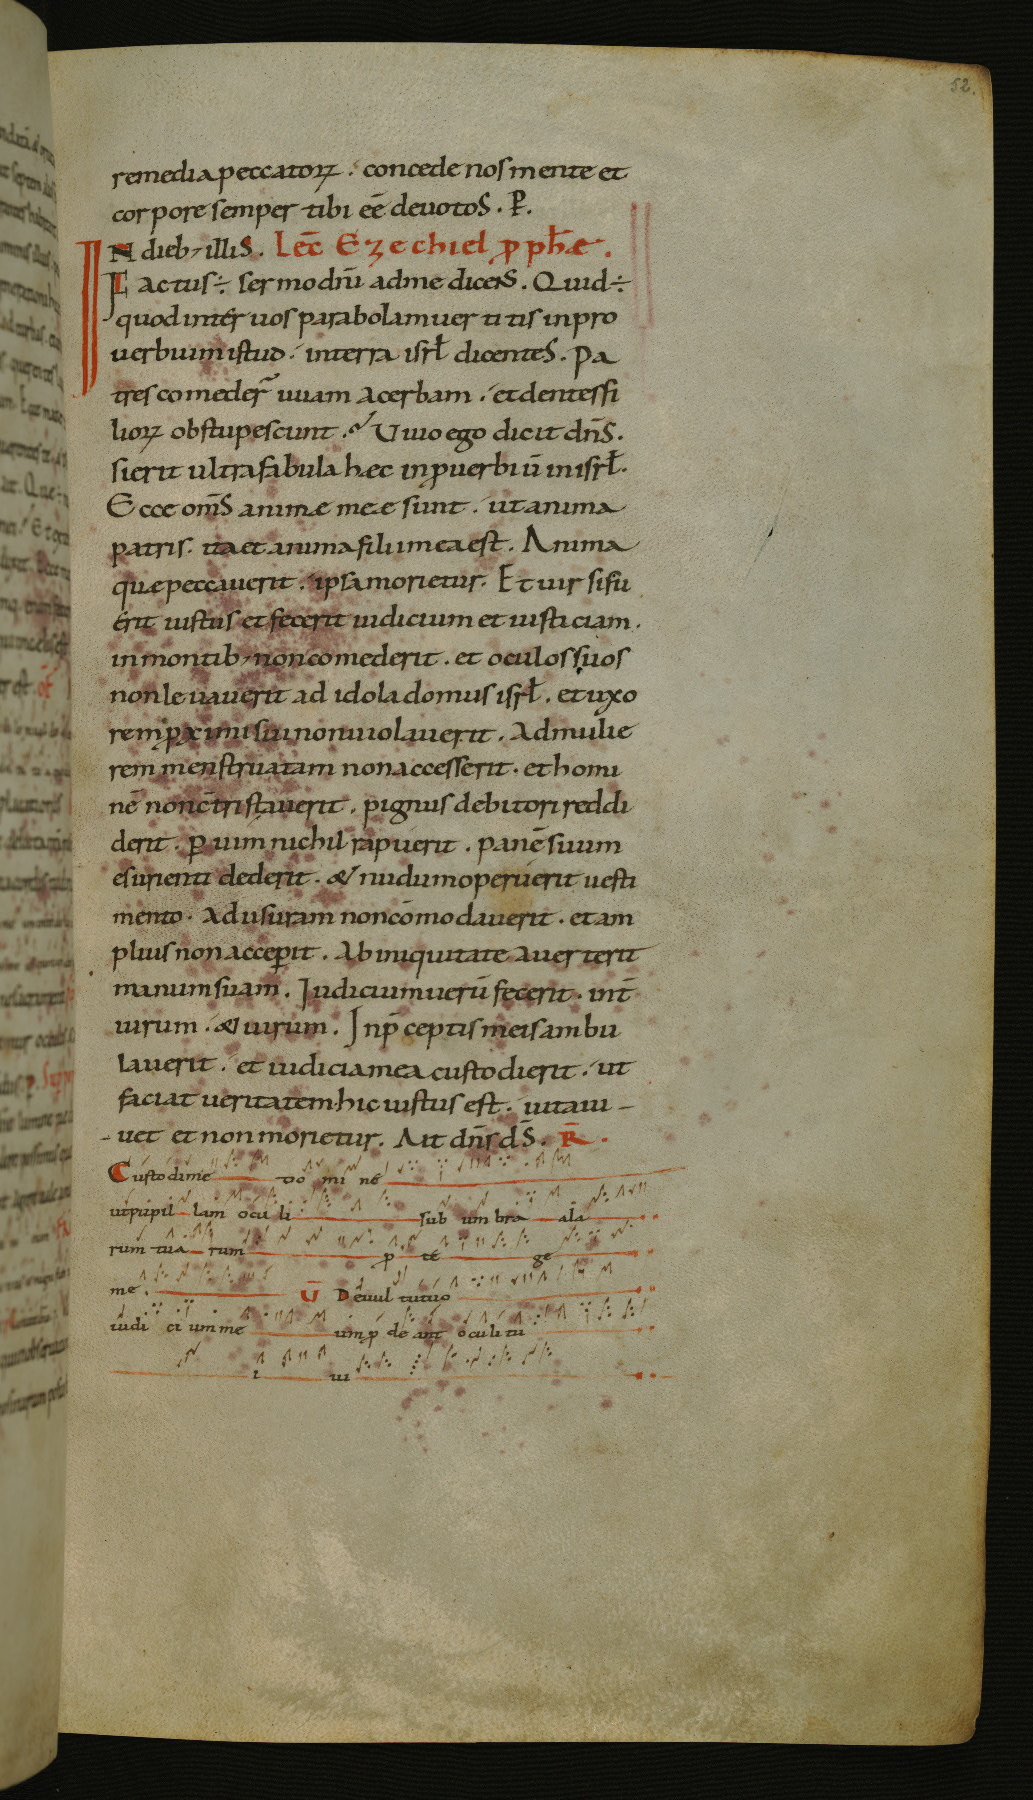 52.
remedia peccatoꝝ. concede nos mente et
corpore semper tibi eē deuotoS. P.
IN dieb; illiS. Lec̄ Ezechiel ꝓph̄æ.
Factus ÷ sermo dn̄i ad me dicenS. Quid ÷
quod inter uos parabolam uertitis in pro
uerbium istud. in terra isrl̄ dicenteS. Pa
tres comeder̄ uuam acerbam. et dentes fi
lioꝝ obstupescunt. Viuo ego dicit dn̄S.
si erit ultra fabula hæc in ꝓuerbiū in isrl̄.
Ecce om̄S animæ meæ sunt. ut anima
patris. ita et anima filii mea est. Anima
quæ peccauerit. ipsa morietur. Et uir si fu
erit iustus et fecerit iudicium et iusticiam.
in montib; non comederit. et oculos suos
non leuauerit ad idola domus isrl̄. et uxo
rem ꝓximi sui non uiolauerit. Ad mulie
rem menstruatam non accesserit. et homi
nē non c̄tristauerit. pignus debitori reddi
derit. ꝑ uim nichil rapuerit. panē suum
esurienti dederit. & nudum operuerit uesti
mento. Ad usuram non cōmodauerit. et am
plius non acceperit. Ab iniquitate auerterit
manum suam. Iudicium uerū fecerit. int̄
uirum. & uirum. In p̄ceptis meis ambu
lauerit. et iudicia mea custodierit. ut
faciat ueritatem. hic iustus est. uita ui-
-uet et non morietur. Ait dn̄s dS̄. R̄.
Custodi me do mi ne
ut pupil lam ocu li sub um bra ala
rum tua rum p te ge
me. V̄ De uul tu tuo
iudi ci um me um ꝓ de ant oculi tu
i ui